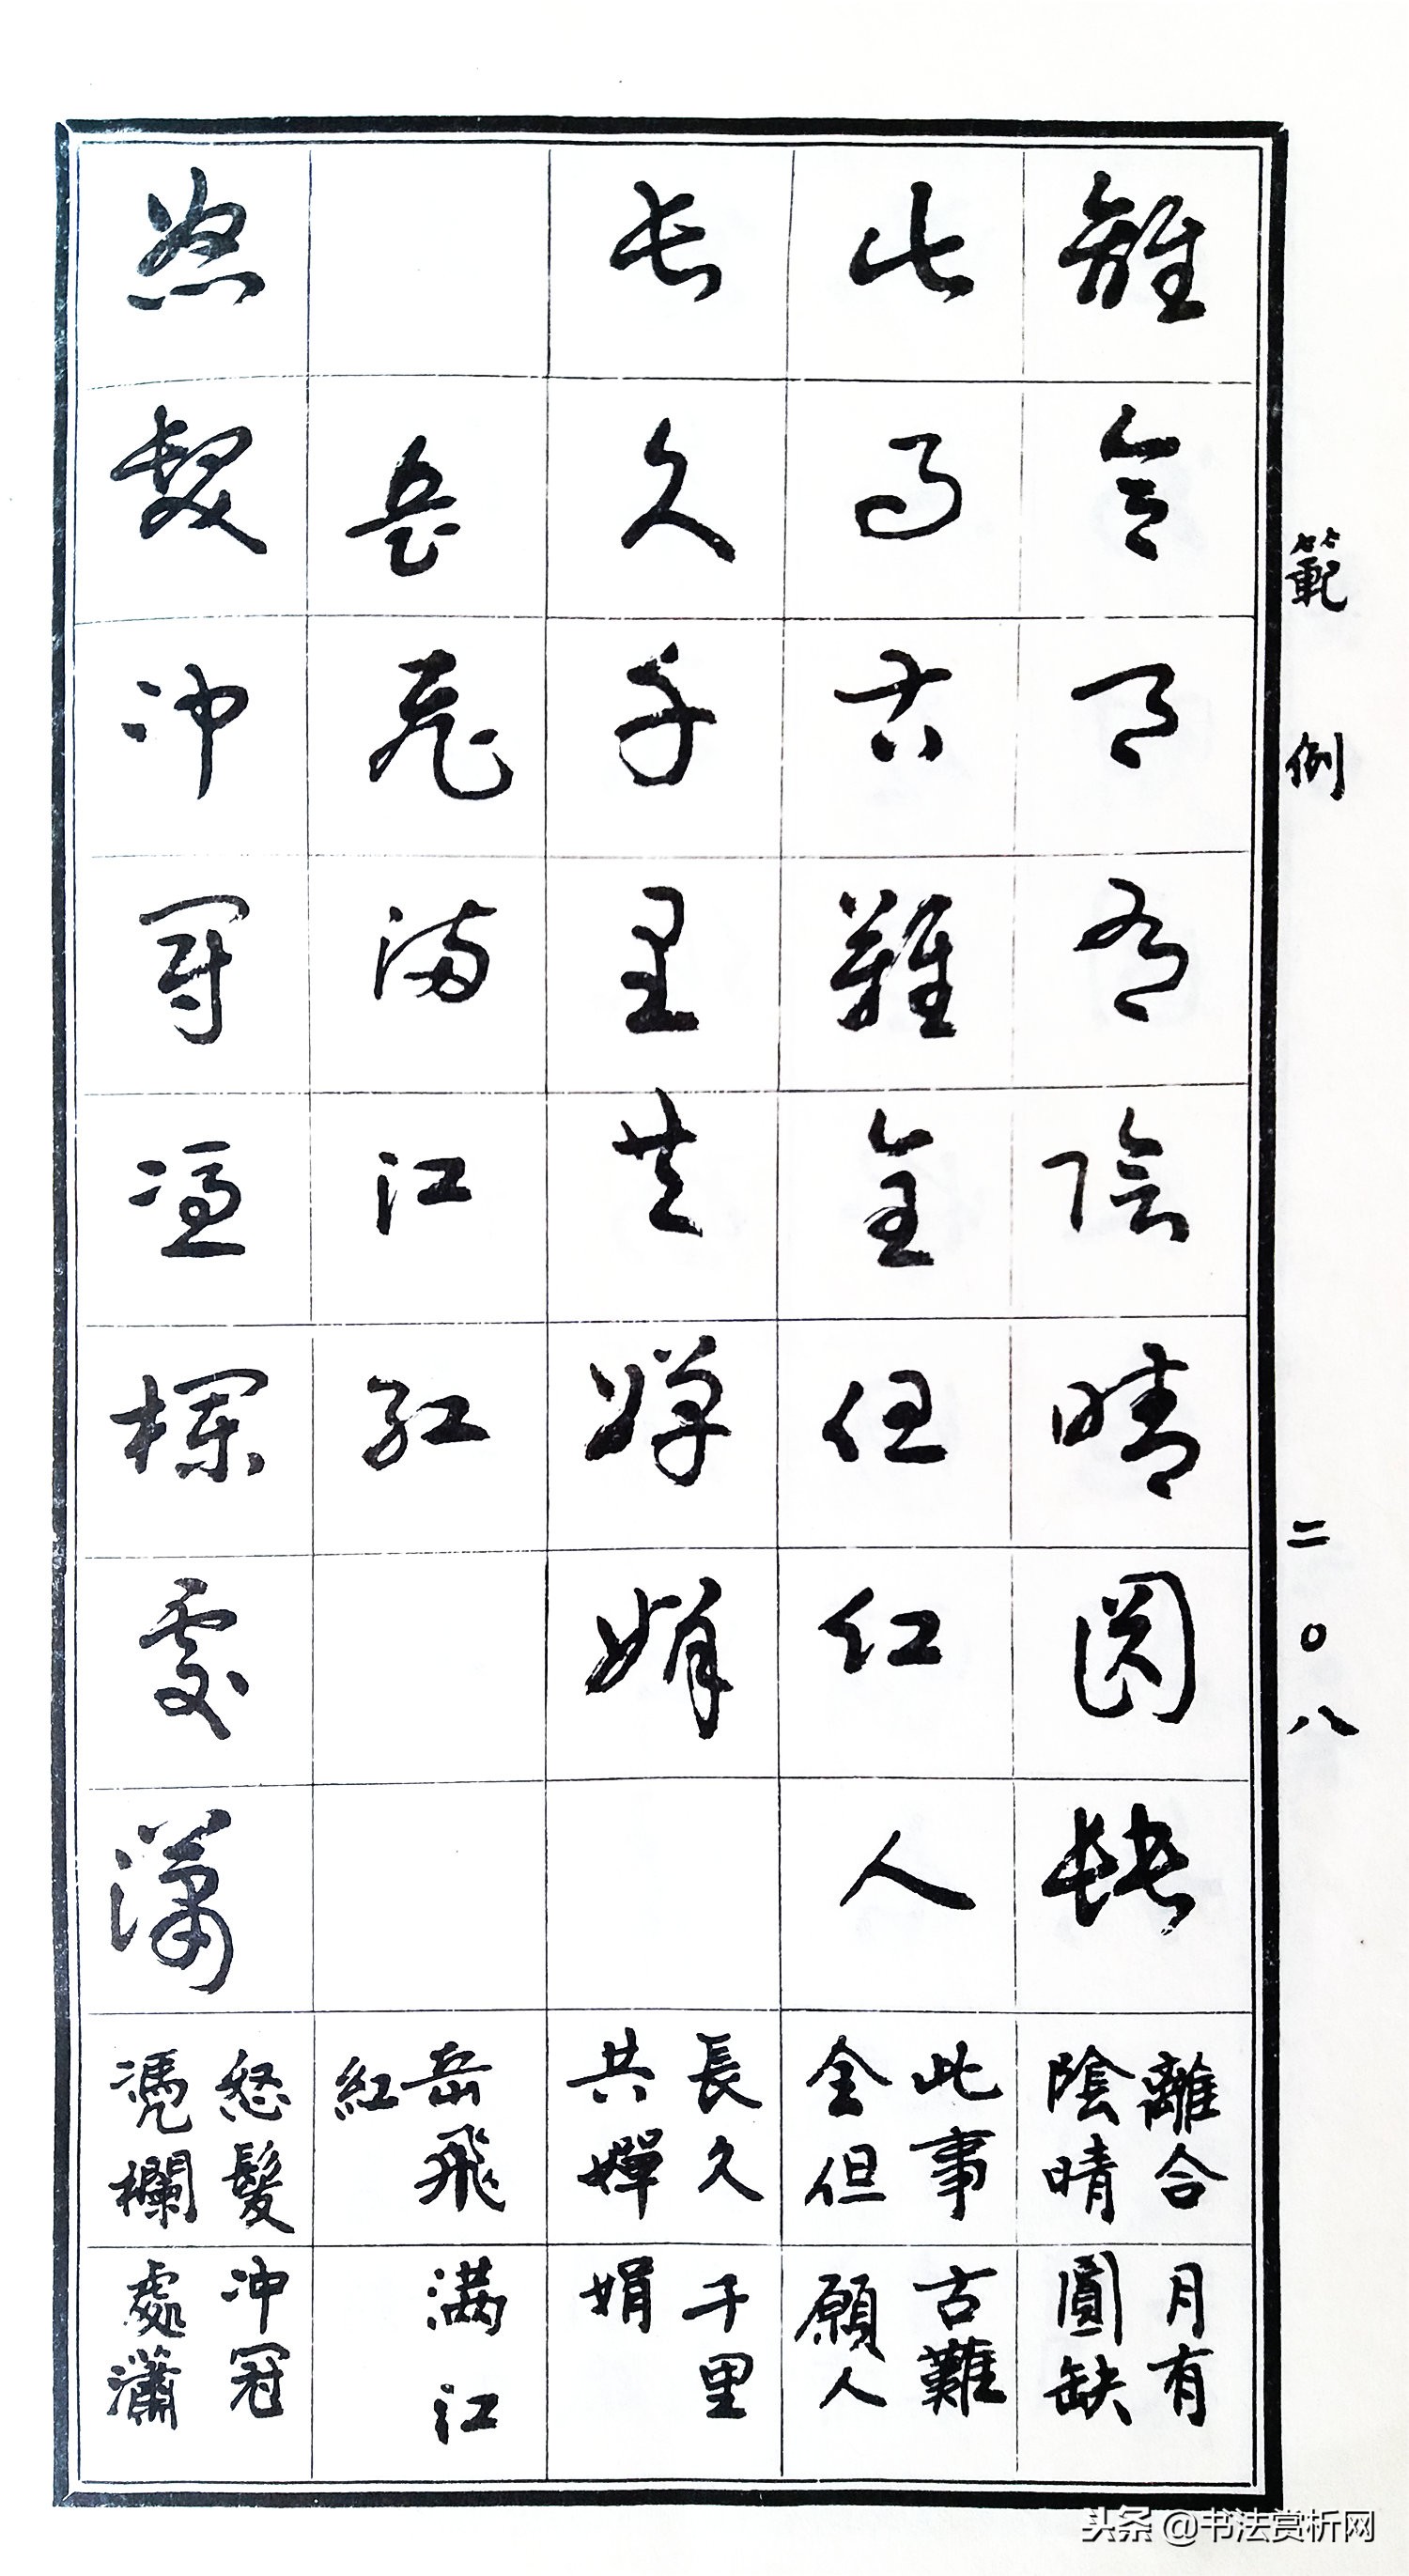 範例 二〇八
離合月有陰晴圓缺
此事古難全但願人
長久千里共嬋娟
岳飛滿江紅
怒髮冲冠憑欄處瀟
離合月有
陰晴圓缺
此事古難
全但願人
長久千里
共嬋娟
岳飛满江
紅
怒髮冲冠
凴欄處瀟
头条 @书法赏析网